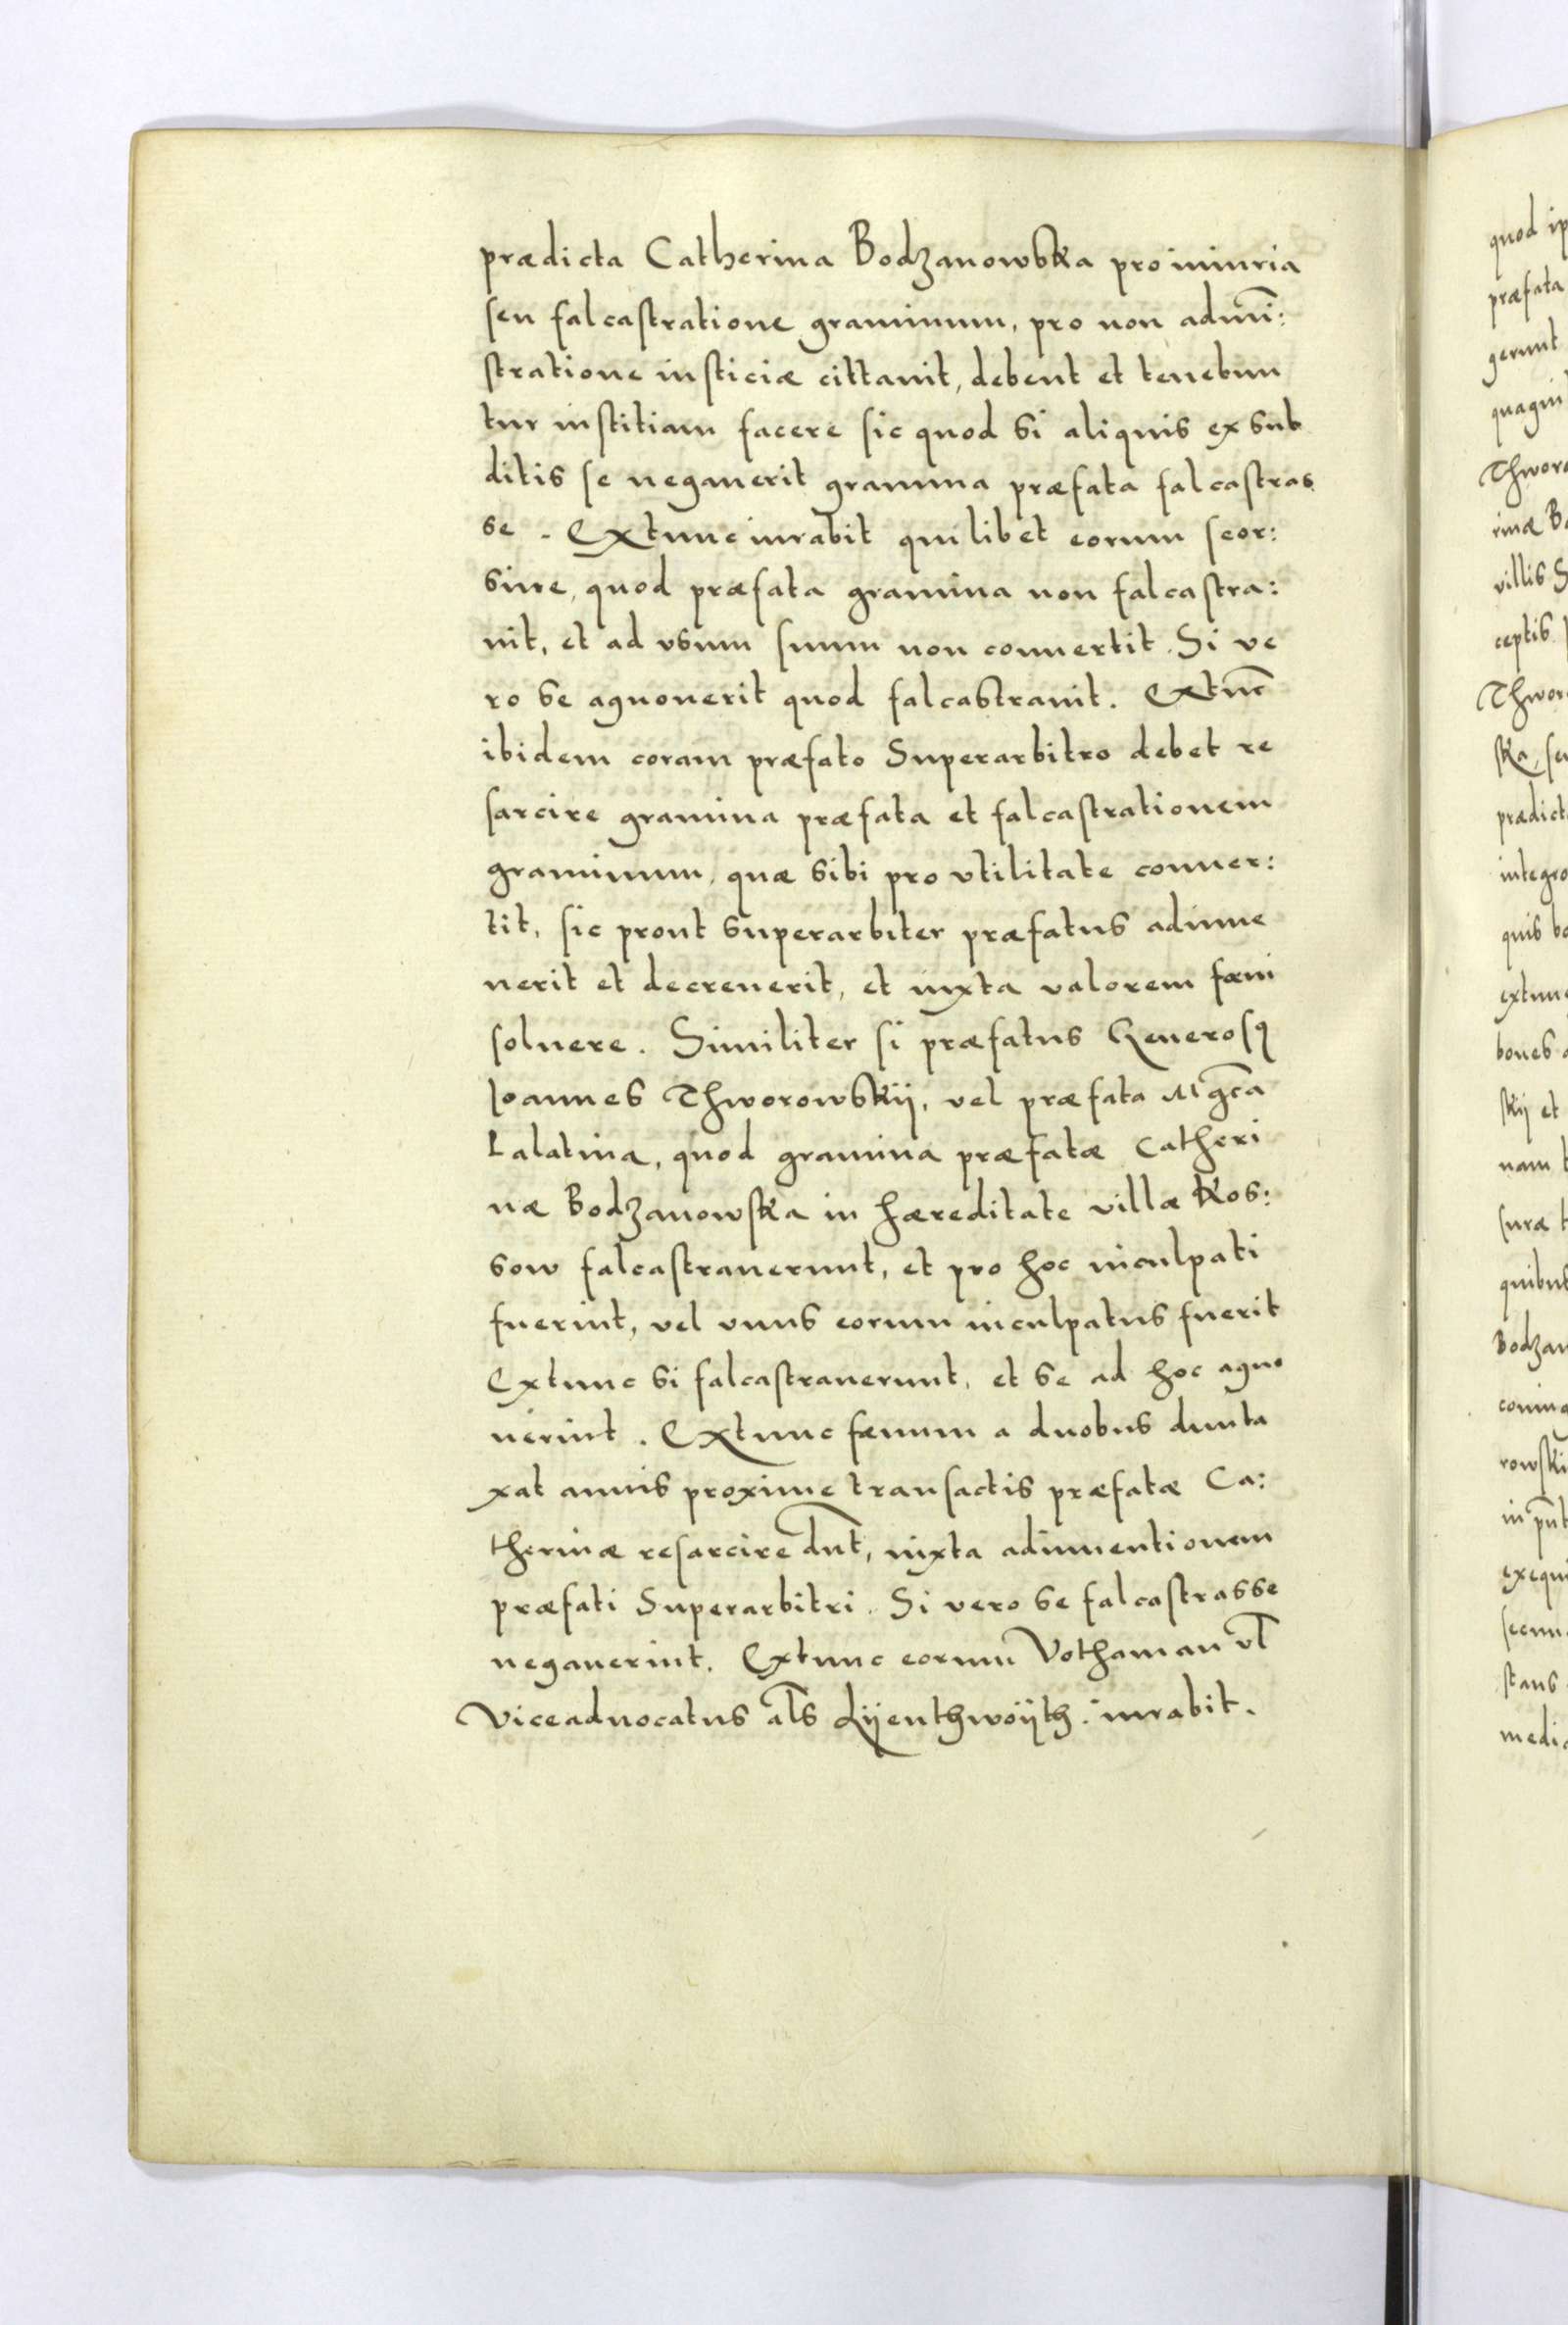 prædicta Catherina Bodzanowska pro iniuria
seu falcastratione graminum, pro non admi:
stratione iusticiæ cittauit, debent et tenebun
tur iustitiam facere sic quod si aliquis ex sub
ditis se negauerit gramina præfata falcastras
se. Extunc iurabit quilibet eorum seor:
sine, quod præfata gramina non falcastra:
uit, et ad vsum suum non conuertit. Si ve
ro se agnouerit quod falcastrauit. Extūc
ibidem coram præfato Superarbitro debet re
sarcire gramina præfata et falcastrationem
graminum, quæ sibi pro vtilitate conuer:
tit, sic prout superarbiter præfatus adinue
nerit et decreuerit, et iuxta valorem fœni
soluere. Similiter si præfatus Generosꝰ
Ioannes Thworowskij, vel præfata Mgc̄a
Lalatina, quod gramina præfatæ Catheri
næ Bodzanowska in hæreditate villæ Kos:
sow falcastrauerunt, et pro hoc inculpati
fuerint, vel vnus eorum inculpatus fuerit
Extunc si falcastrauerunt, et se ad hoc agno
uerint. Extunc fœnum a duobus dunta
xat annis proxime transactis præfatæ Ca:
therinæ resarcire dn̄t, iuxta adinuentionem
præfati Superarbitri. Si vero se falcastrasse
negauerint. Extunc eorum Vothaman vl̄
Viceaduocatus al̄s Lijenthwoÿth. iurabit.
quod ip
præfata
gerunt
quagin
Thworo
rinæ Bo
villis S
ceptis
Thwor
ska, seu
prædict
integro
quis bo
extunc
boues a
skij et
nam t
suræ t
quibus
Bodzan
coniug
rowski
in pn̄t
exequ
secun
stans
media